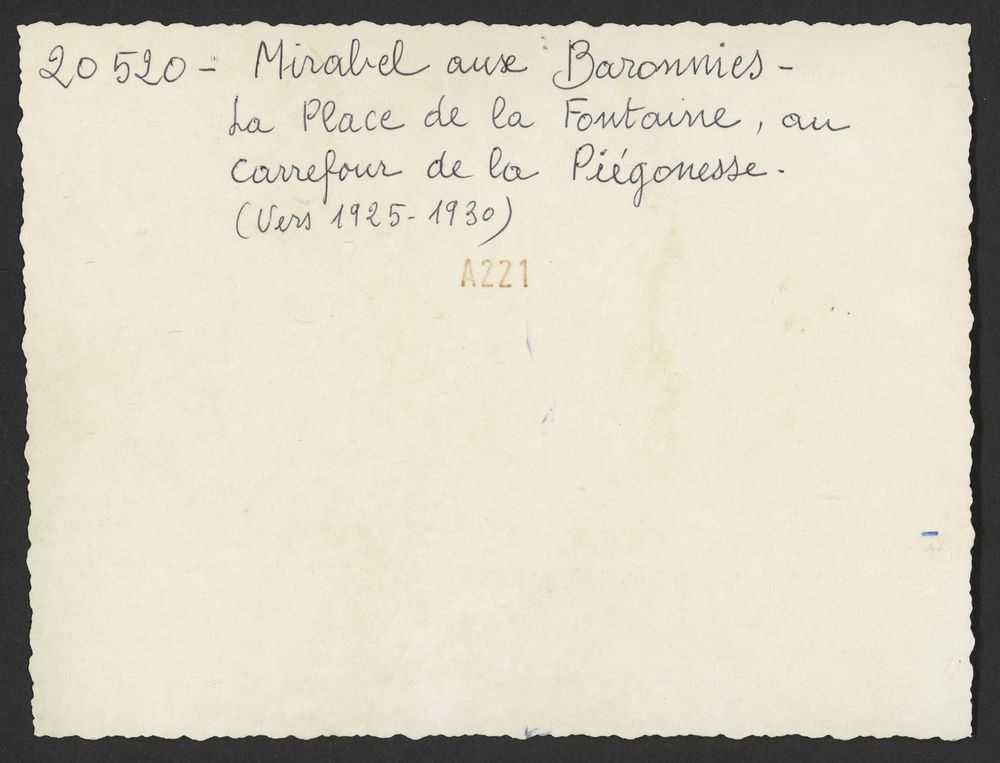 20520 - Mirabel aux Baronnies -
La Place de la Fontaine, au
carrefour de la Piégonesse.
(Vers 1925-1930)
A221